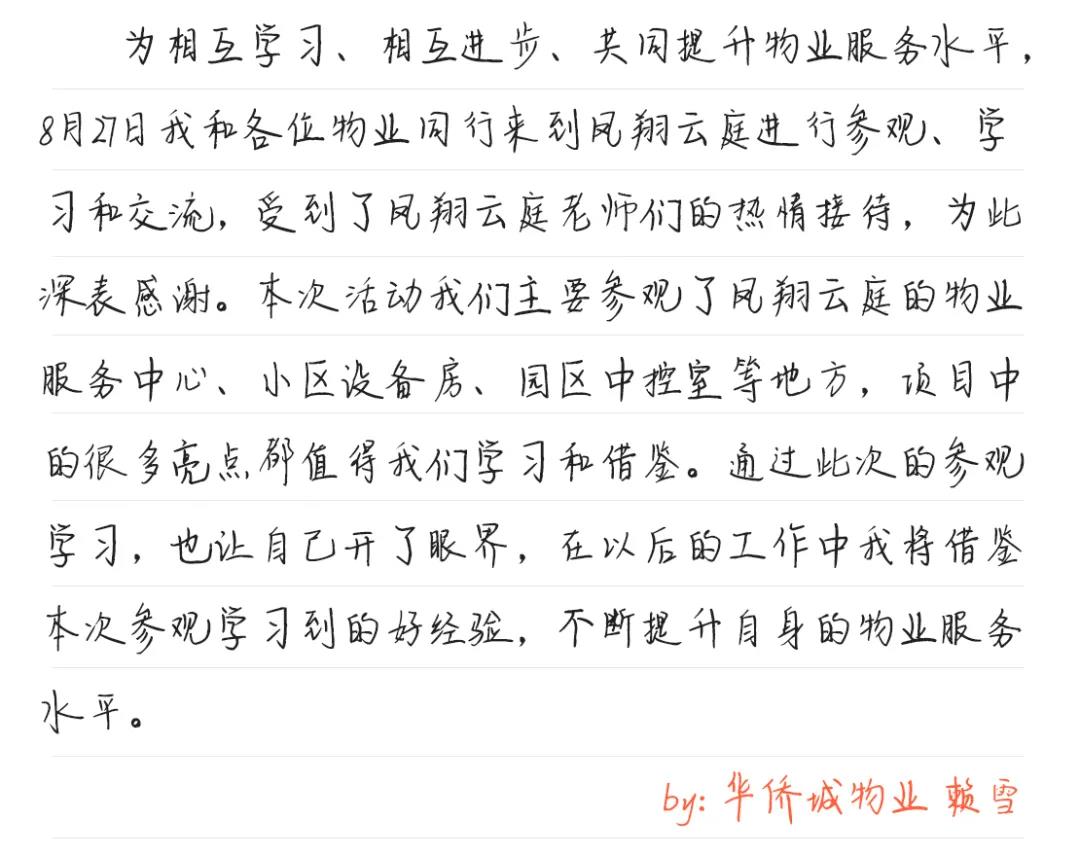 为相互学习、相互进步、共同提升物业服务水平，
8月27日我和各位物业同行来到凤翔云庭进行参观、学
习和交流，受到了凤翔云庭老师们的热情接待，为此
深表感谢。本次活动我们主要参观了凤翔云庭的物业
服务中心、小区设备房、园区中控室等地方，项目中
的很多亮点都值得我们学习和借鉴。通过此次的参观
学习，也让自己开了眼界，在以后的工作中我将借鉴
本次参观学习到的好经验，不断提升自身的物业服务
水平。
by: 华侨城物业 赖雪